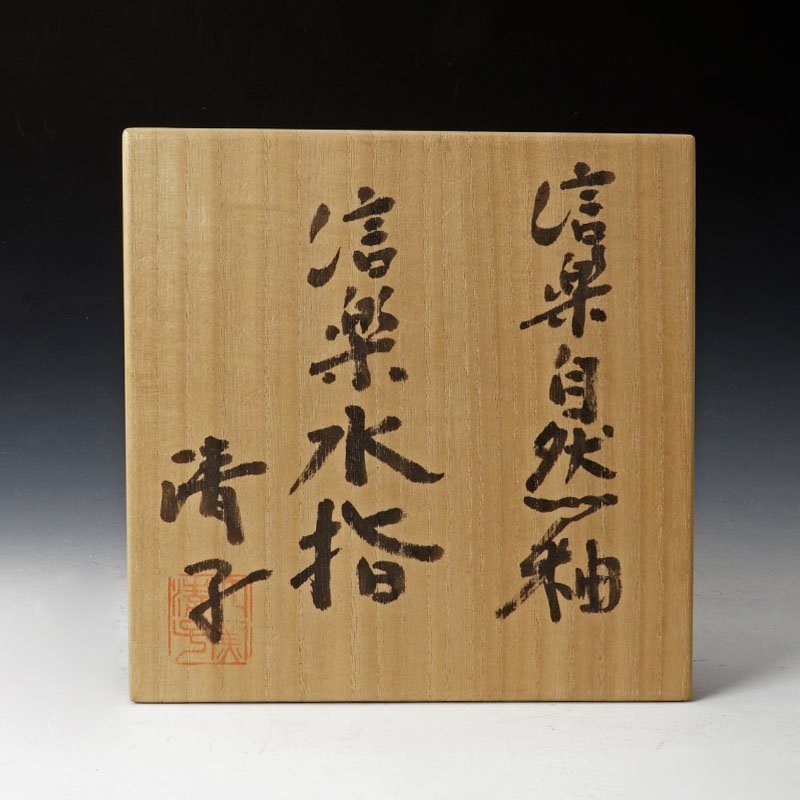 信楽自然釉
信楽水指
清子